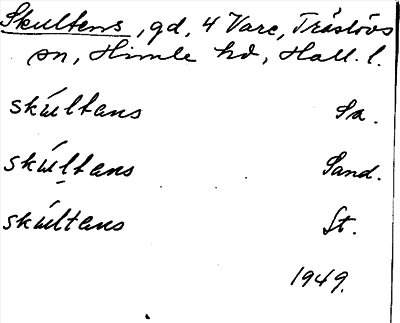 Skultens, gd, 4 Vare, Träslövs
sn, Himle hd, Hall. l.
skúltans Sa.
skúltans Sand.
skúltans St.
1949.